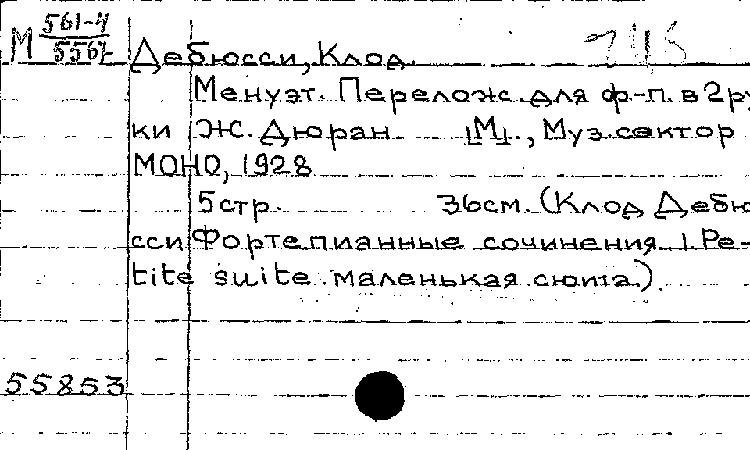 М 561-4
5561
Дебюсси, Клод.
Менуэт. Перелож. для ф-п. в 2 ру
ки Ж. Дюран [М]., Муз. сектор
МОНО, 1928
5 стр. 36 см. (Клод Дебю
сси Фортепианные сочинения 1. Pe-
tite suite маленькая сюита.)
55853